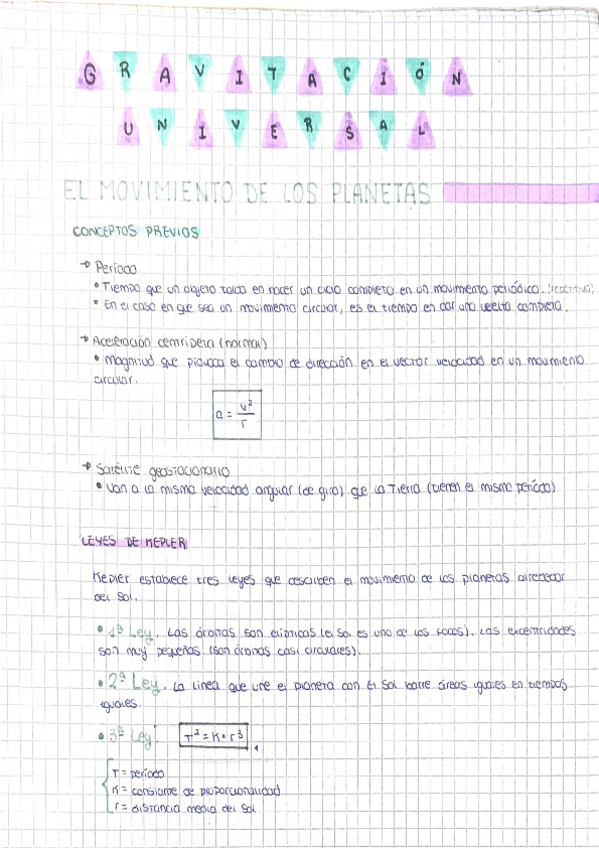 GRAVITACIÓN
UNIVERSAL
EL MOVIMIENTO DE LOS PLANETAS
CONCEPTOS PREVIOS
→ Período
• Tiempo que un objeto tarda en hacer un ciclo completo en un movimiento periódico. (repetitivo)
• En el caso en que sea un movimiento circular, es el tiempo en dar una vuelta completa.
→ Aceleración centrípeta (normal)
• Magnitud que provoca el cambio de dirección en el vector velocidad en un movimiento
circular.
a = v²/r
→ Satélite geostacionario
• Van a la misma velocidad angular (de giro) que la Tierra (tienen el mismo período)
LEYES DE KEPLER
Kepler establece tres leyes que describen el movimiento de los planetas alrededor
del Sol.
• 1ª Ley. Las órbitas son elípticas (el Sol es uno de los focos). Las excentricidades
son muy pequeñas (son órbitas casi circulares).
• 2ª Ley. La línea que une el planeta con el Sol barre áreas iguales en tiempos
iguales.
• 3ª Ley. T² = K · r³.
T = período
K = constante de proporcionalidad
r = distancia media del Sol